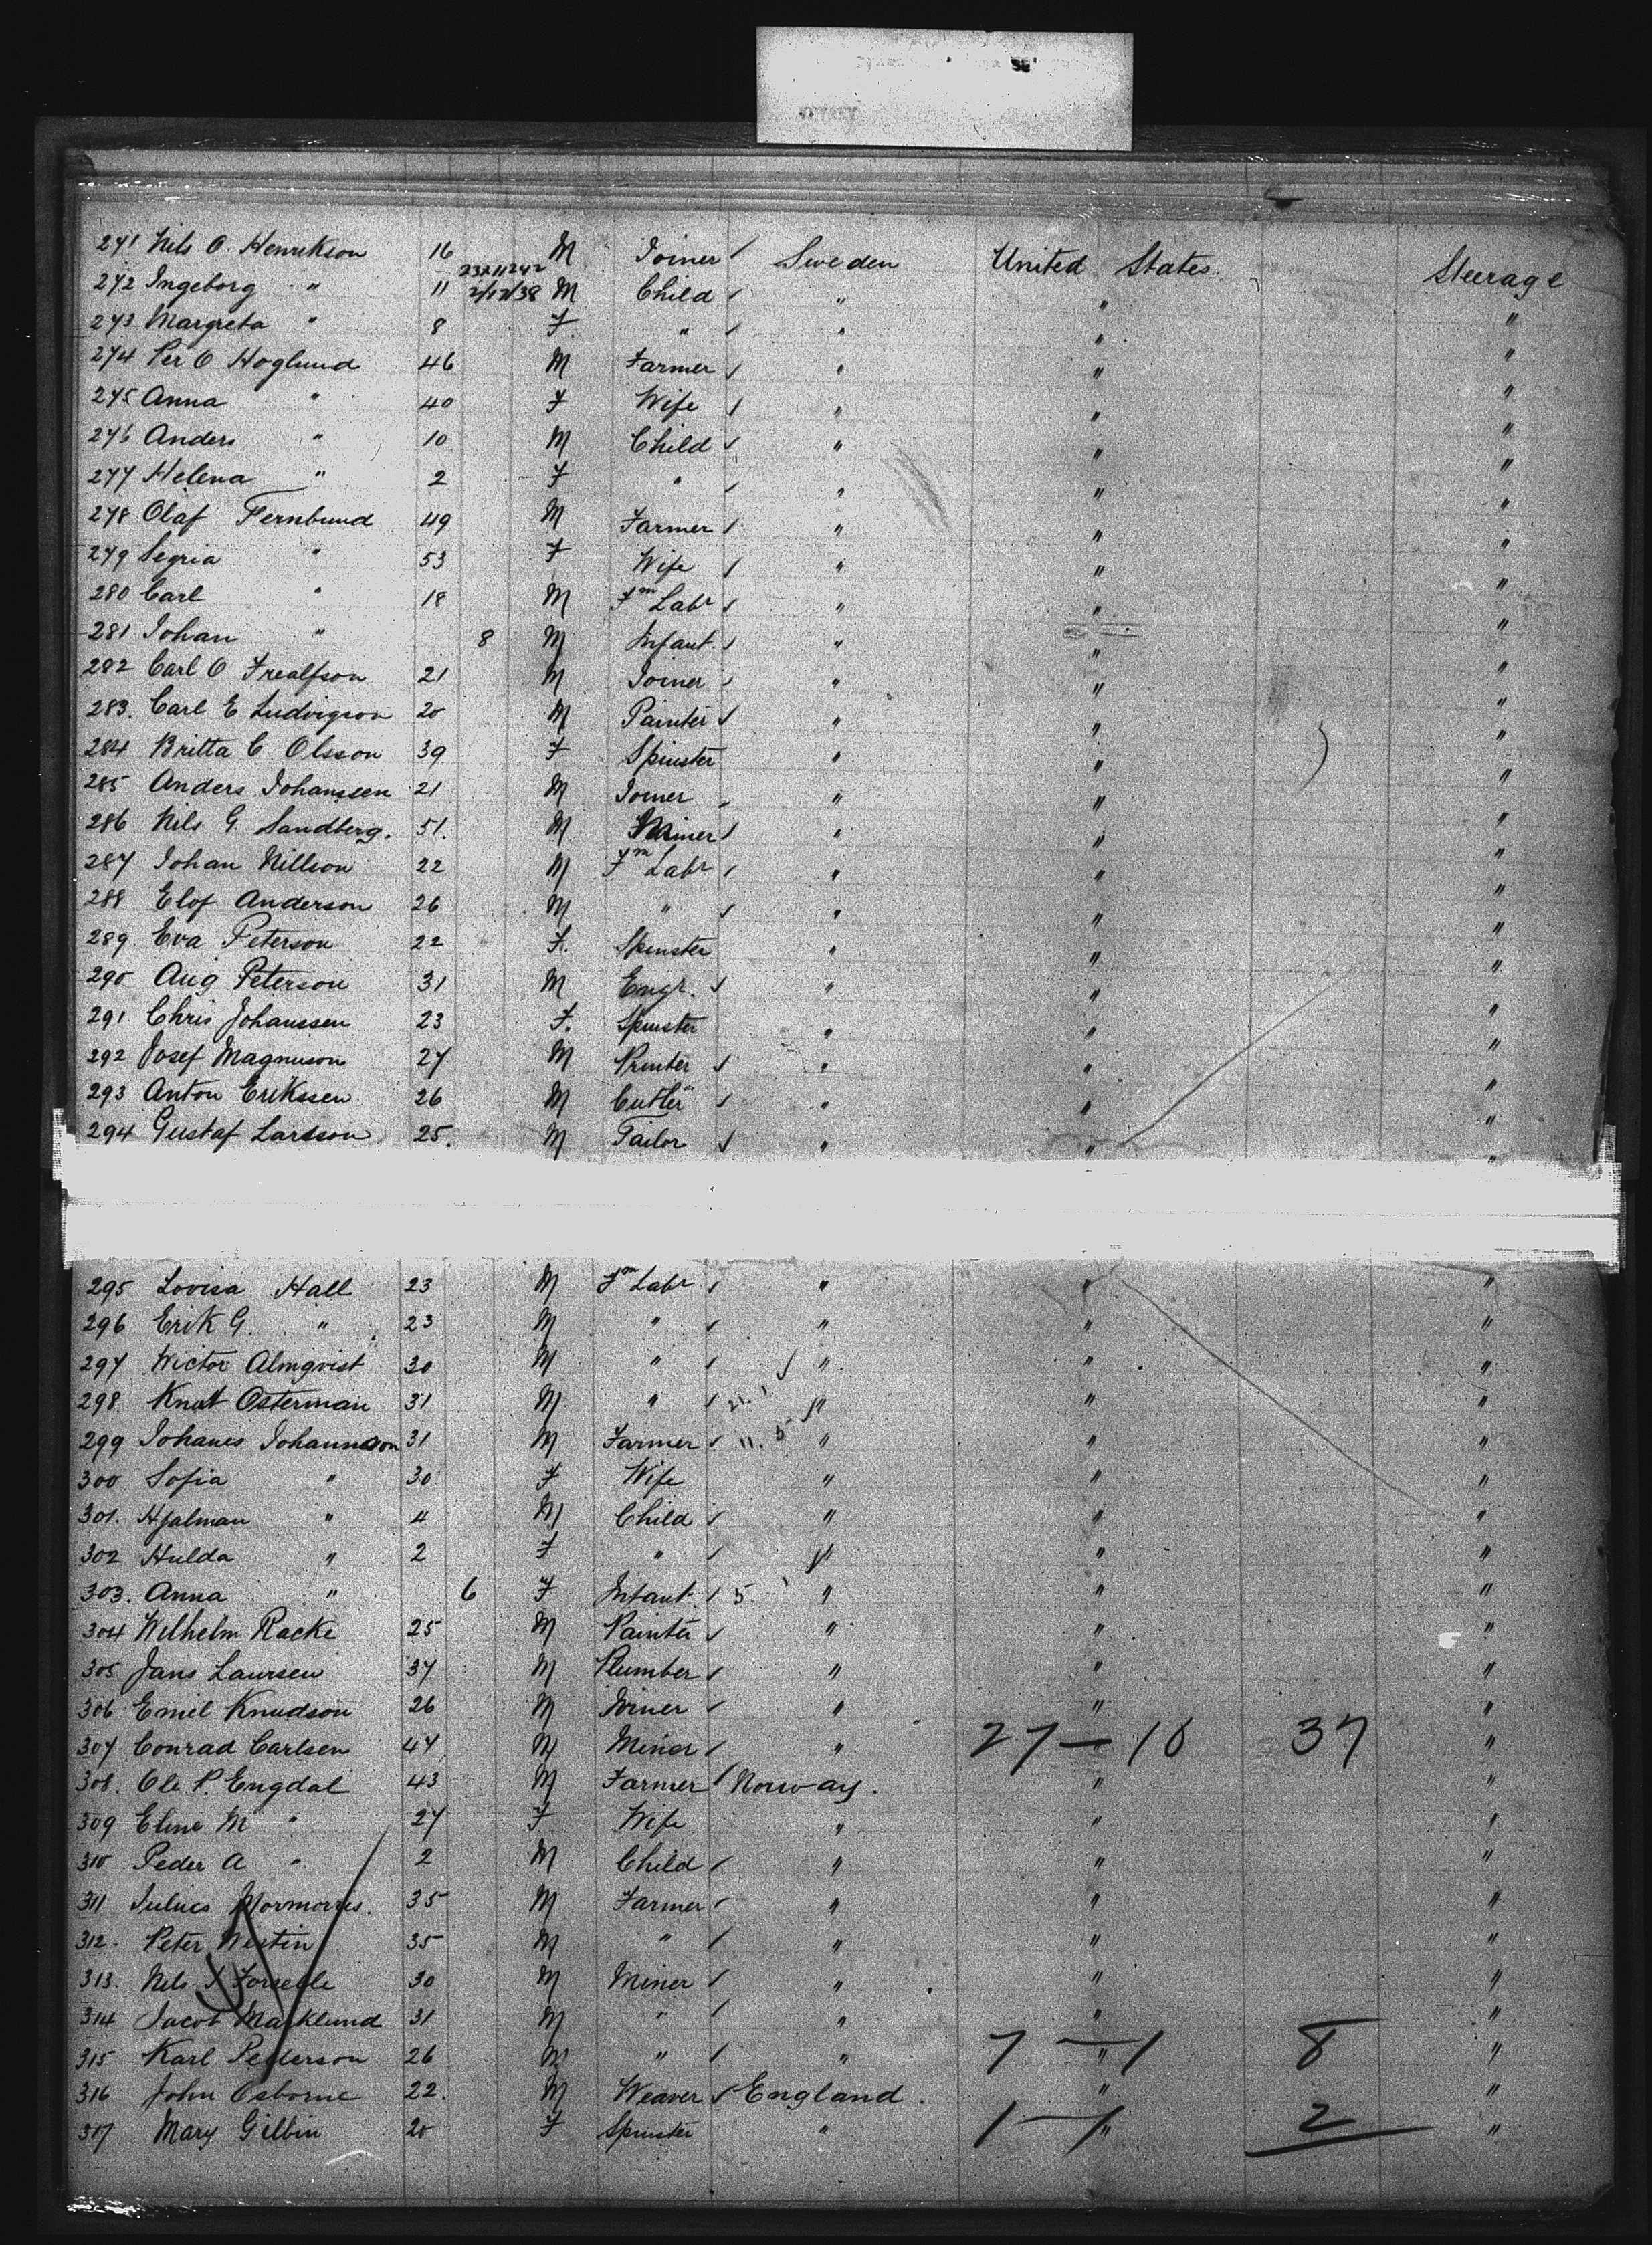 271 Nils O. Henrikson 16 M Joiner Sweden United States Steerage
23x11242
272 Ingeborg " 11 2/17/38 M Child " " "
273 Margreta " 8 F " " " "
274 Per O Hoglund 46 M Farmer " " "
275 Anna " 40 F Wife " " "
276 Anders " 10 M Child " " "
277 Helena " 2 F " " " "
278 Olaf Fernbund 49 M Farmer " " "
279 Segria " 53 F Wife " " "
280 Carl " 18 M Fm Labr " " "
281 Johan " 8 M Infant " " "
282 Carl O Frealfson 21 M Joiner " " "
283. Carl E Ludvigson 20 M Painter " " "
284 Britta C Olsson 39 F Spinster " " "
285 Anders Johanssen 21 M Joiner " " "
286 Nils G. Sandberg. 51. M Miner " " "
287 Johan Nillson 22 M Fm Labr " " "
288 Elof Anderson 26 M " " " "
289. Eva Peterson 22 F. Spinster " " "
290 Aug Peterson 31 M Engr. " " "
291 Chris Johanssen 23 F. Spinster " " "
292 Josef Magnuson 27 M Printer " " "
293 Anton Erikssen 26 M Cutler " " "
294 Gustaf Larsson 25. M Tailor " " "
295 Lovisa Hall 23 M Fm Labr " " "
296 Erik G. " 23 M " " " "
297 Wictor Almqvist 30 M " " " "
298 Knut Osterman 31 M " 21. " " "
299 Johanes Johannson 31 M Farmer 11. 5 " " "
300 Sofia " 30 F Wife " " "
301. Hjalman " 4 M Child " " "
302 Hulda " 2 F " " " "
303. Anna " 6 F Infant 5. " " "
304 Wilhelm Racke 25 M Painter " " "
305 Jans Laursen 37 M Plumber " " "
306 Emil Knudson 26 M Joiner " " "
307 Conrad Carlsen 47 M Miner " 27 — 10 37 "
308. Ole P. Engdal 43 M Farmer Norway. " "
309 Eline M " 27 F Wife " " "
310 Peder A " 2 M Child " " "
311 Julius Mormorris. 35 M Farmer " " "
312. Peter Westin 35 M " " " "
313. Nils 30 M Miner " " "
314 Jacob Marklund 31 M " " " "
315 Karl Pederson 26 M " " 7 — 1 8 "
316 John Osborne 22. M Weaver England. " "
317 Mary Gilbin 20 F Spinster " 1 — 1 2 "